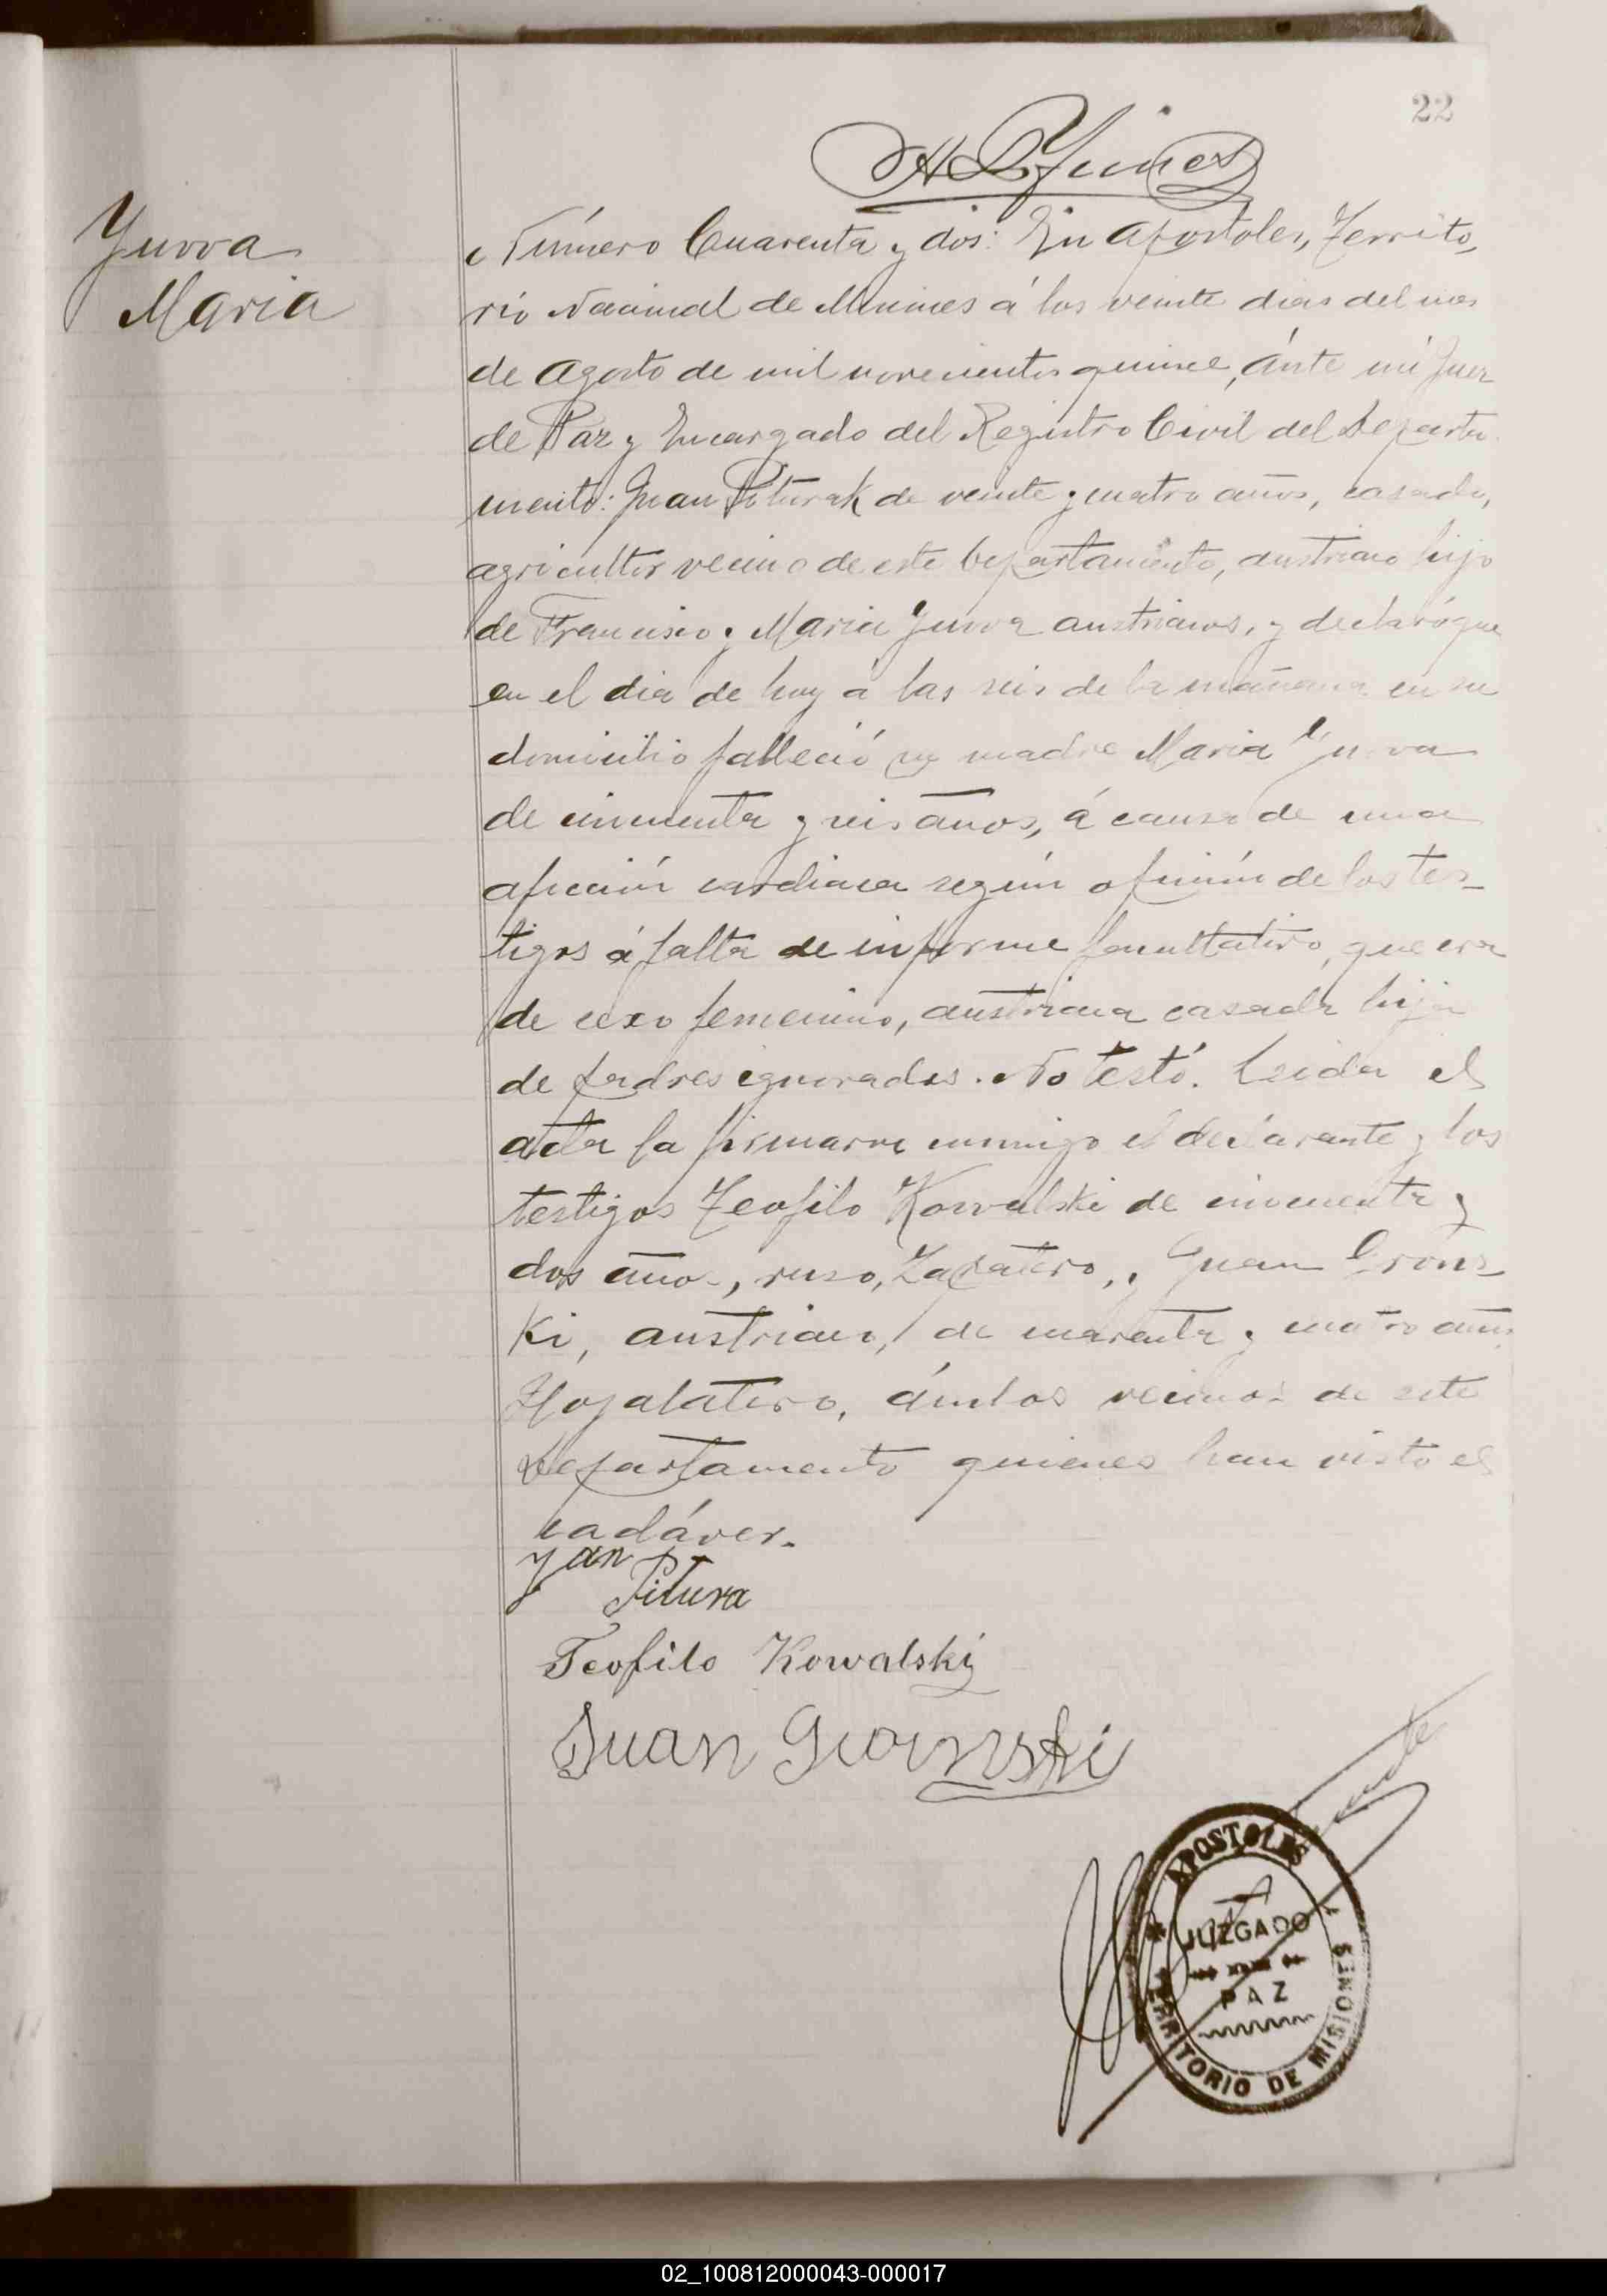 22
Yurra
Maria
Número Cuarenta y dos: En Apostoles, Territo-
rio Nacional de Misiones á los veinte dias del mes
de Agosto de mil novecientos quince, ánte mi Juez
de Paz y Encargado del Registro Civil del Departa-
mento: Juan Piturak de veinte y cuatro años, casado,
agricultor vecino de este Departamento, austriaco hijo
de Francisco y Maria Yurra austriacos, y declaró que
en el dia de hoy á las seis de la mañana en su
domicilio falleció su madre Maria Yurra
de cincuenta y seis años, á causa de una
afección cardiaca según opinión de los tes-
tigos á falta de informe facultativo, que era
de cexo femenino, austriaca casada hija
de padres ignorados. No testó. Leida el
acta la firmaron conmigo el declarante y los
testigos Teofilo Kowalski de cincuenta y
dos años, ruso, Zapatero, y Juan Grons-
ki, austriaco, de cuarenta y cuatro años
Hojalatero, ámbos vecinos de este
Departamento quienes han visto el
cadáver.
Yan
Pitura
Teofilo Kowalski
Juan Gronski
APOSTOLES
JUZGADO
PAZ
TERRITORIO DE MISIONES
02_100812000043-000017